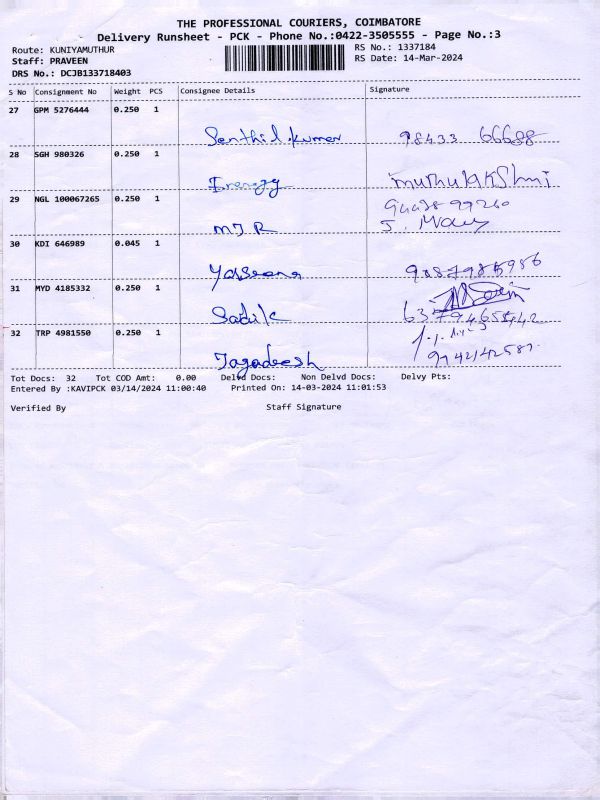 THE PROFESSIONAL COURIERS, COIMBATORE
Delivery Runsheet - PCK - Phone No.:0422-3505555 - Page No.:3
Route: KUNIYAMUTHUR
RS No.: 1337184
Staff: PRAVEEN
RS Date: 14-Mar-2024
DRS No.: DCJB133718403
S No Consignment No Weight PCS Consignee Details Signature
27 GPM 5276444 0.250 1
Senthil kumar 98433 66688
28 SGH 980326 0.250 1
muthulakshmi
29 NGL 100067265 0.250 1
MJR
30 KDI 646989 0.045 1
31 MYD 4185332 0.250 1
Sadik
32 TRP 4981550 0.250 1
Jagadeesh
Tot Docs: 32 Tot COD Amt: 0.00 Delvd Docs: Non Delvd Docs: Delvy Pts:
Entered By :KAVIPCK 03/14/2024 11:00:40 Printed On: 14-03-2024 11:01:53
Verified By Staff Signature